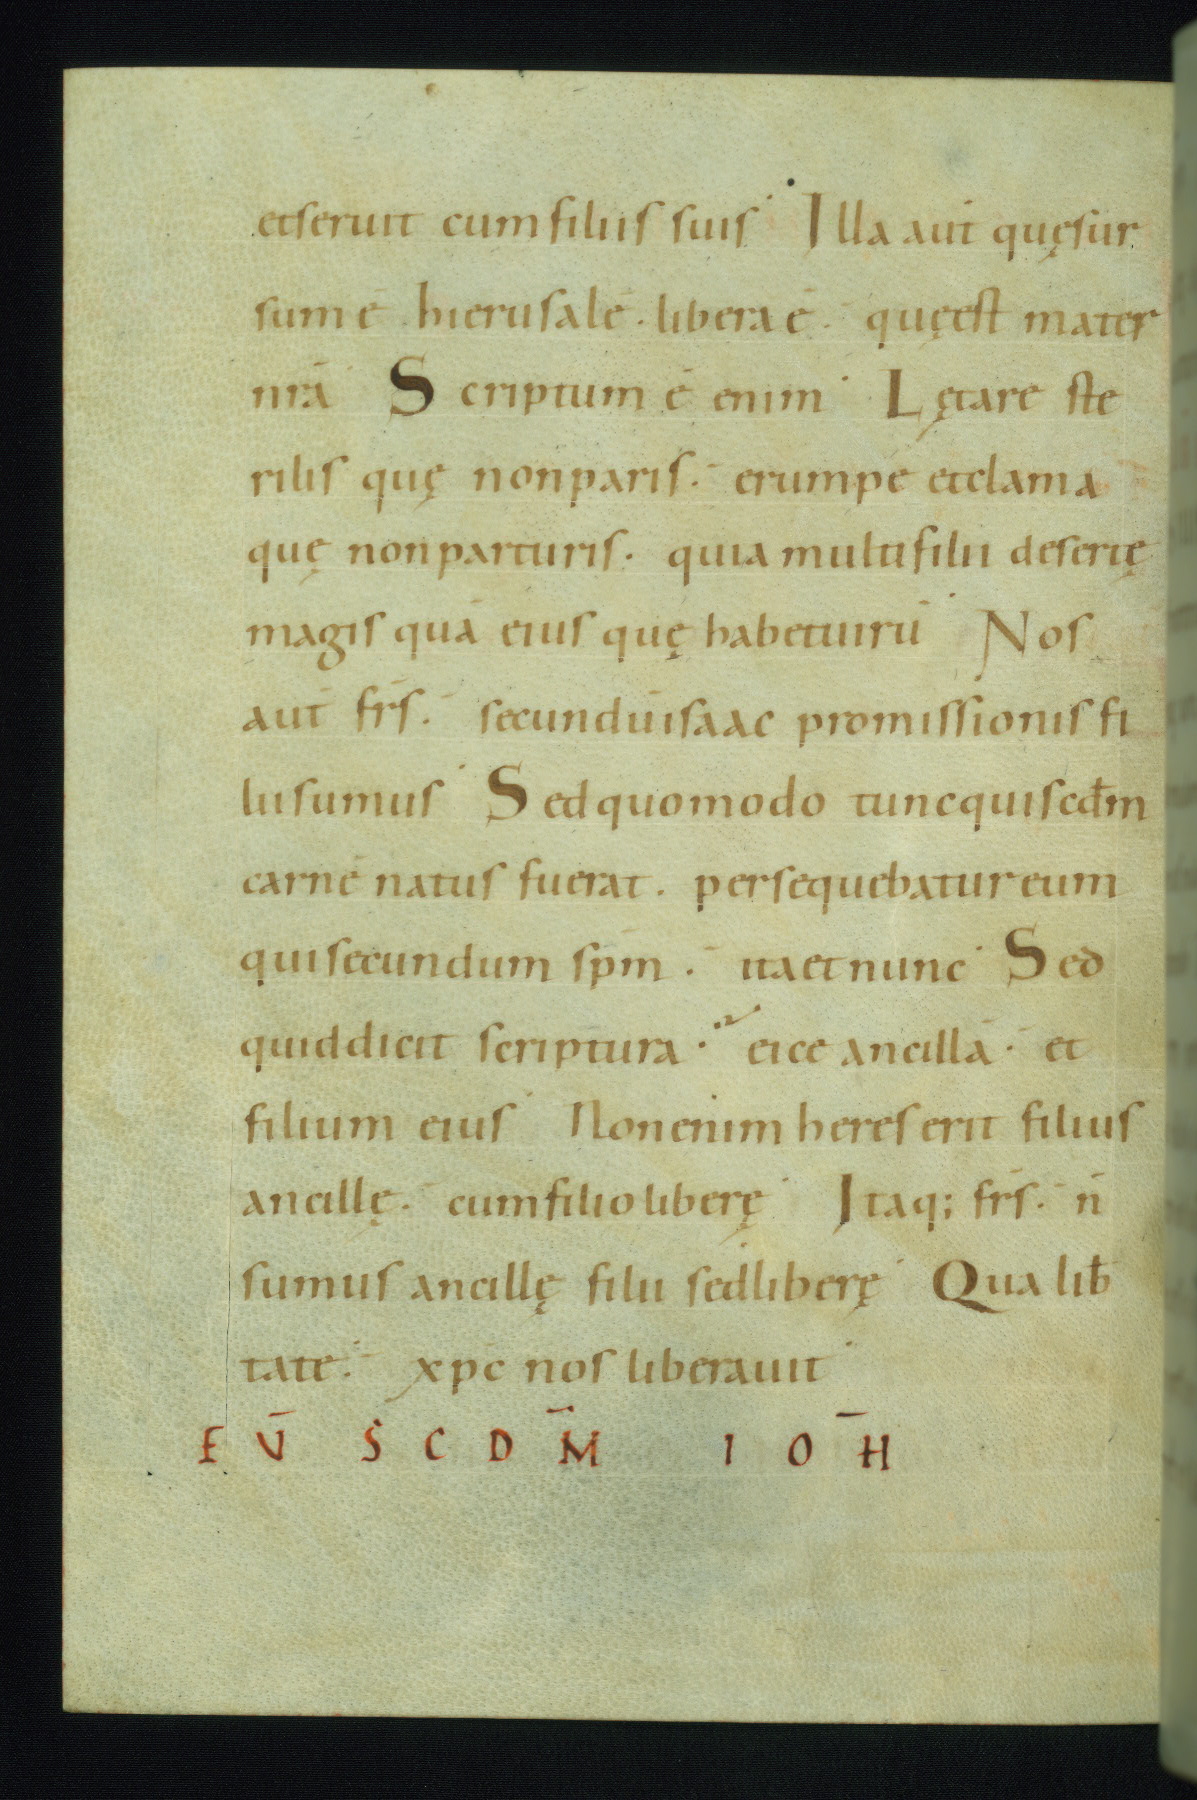 et seruit cum filiis suis. Illa aut̄ quę sur
sum ē hierusalē. libera ē. quę est mater
nr̄a Scriptum ē enim. Lętare ste
rilis quę non paris. erumpe et clama
quę non parturis. quia multi filii desertę
magis quā eius quę habet uirū Nos
aut̄ frs̄. secundū isaac promissionis fi
lii sumus Sed quomodo tunc qui scd̄m
carnē natus fuerat. persequebatur eum
qui secundum sp̄m. ita et nunc Sed
quid dicit scriptura. eice ancillā. et
filium eius Non enim heres erit filius
ancillę. cum filio liberę Itaq; frs̄. n̄
sumus ancillę filii sed liberę Qua lib̄
tate. xp̄c nos liberauit
EV̄ SCDM̄ IOH̄